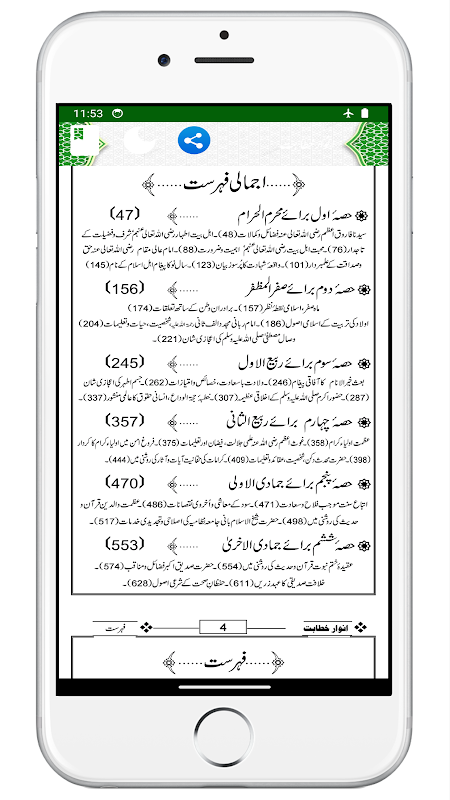 11:53
اجمالی فہرست
حصۂ اول برائے محرم الحرام ...... (47)
سیدنا فاروق اعظم رضی اللہ تعالیٰ عنہ فضائل و کمالات (48)۔ اہل بیت اطہار رضی اللہ تعالیٰ عنہم شرف و فضیلت کے
تاجدار (76)۔ محبت اہل بیت رضی اللہ تعالیٰ عنہم اہمیت و ضرورت (88)۔ امام عالی مقام رضی اللہ تعالیٰ عنہ حق
و صداقت کے علمبردار (101)۔ واقعۂ شہادت کا پُرسوز بیان (123)۔ سال نو کا پیغام اہل اسلام کے نام (145)
حصۂ دوم برائے صفر المظفر ...... (156)
ماہ صفر، اسلامی نقطۂ نظر (157)۔ برادران وطن کے ساتھ تعلقات (174)
اولاد کی تربیت کے اسلامی اصول (186)۔ امام ربانی مجدد الف ثانی رحمۃ اللہ علیہ شخصیت، حیات و تعلیمات (204)
وصال مصطفیٰ صلی اللہ علیہ وسلم کی اعجازی شان (221)۔
حصۂ سوم برائے ربیع الاول ...... (245)
بعثت خیر الانام کا آفاقی پیغام (246)۔ ولادت باسعادت، خصائص و امتیازات (262)۔ جسم اطہر کی اعجازی شان
(287)۔ حضور اکرم صلی اللہ علیہ وسلم کے اخلاق عظیمہ (307)۔ خطبۂ حجۃ الوداع، انسانی حقوق کا عالمی منشور (337)۔
حصۂ چہارم برائے ربیع الثانی ...... (357)
عظمت اولیاء کرام (358)۔ غوث اعظم رضی اللہ عنہ علمی جلالت، فیضان اور تعلیمات (375)۔ فروغ امن میں اولیاء کرام کا کردار
(398)۔ حضرت محدث دکن، شخصیت، عقائد و تعلیمات (409)۔ کرامات کی حقانیت آیات و آثار کی روشنی میں (444)۔
حصۂ پنجم برائے جمادی الاولی ...... (470)
اتباع سنت موجب فلاح و سعادت (471)۔ سود کے معاشی و اُخروی نقصانات (486)۔ عظمت والدین قرآن و
حدیث کی روشنی میں (498)۔ حضرت شیخ الاسلام بانی جامعہ نظامیہ کی اصلاحی و تجدیدی خدمات (517)۔
حصۂ ششم برائے جمادی الاخریٰ ...... (553)
عقیدۂ ختم نبوت قرآن و حدیث کی روشنی میں (554)۔ حضرت صدیق اکبر فضائل و مناقب (574)۔
خلافت صدیقی کا عہد زریں (611)۔ حفظان صحت کے شرعی اصول (628)۔
انوار خطابت 4 فہرست
فہرست